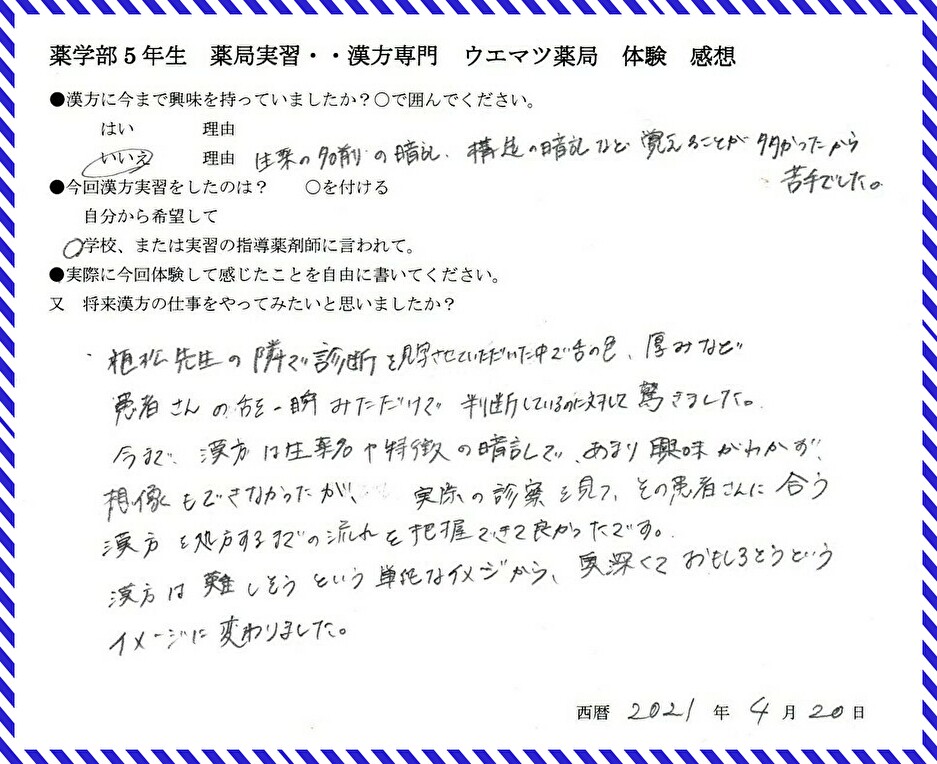 薬学部5年生 薬局実習・・漢方専門 ウエマツ薬局 体験 感想
●漢方に今まで興味を持っていましたか?○で囲んでください。
はい 理由
いいえ 理由 生薬の名前の暗記、構造の暗記など覚えることが多かったから
苦手でした。
●今回漢方実習をしたのは? ○を付ける
自分から希望して
○学校、または実習の指導薬剤師に言われて。
●実際に今回体験して感じたことを自由に書いてください。
又 将来漢方の仕事をやってみたいと思いましたか?
・植松先生の隣で診断を見学させていただいた中で舌の色、厚みなど
患者さんの舌を一瞬みただけで判断しているのに対して驚きました。
今まで、漢方は生薬名や特徴の暗記で、あまり興味がわかず、
想像もできなかったが、実際の診察を見て、その患者さんに合う
漢方を処方するまでの流れを把握できて良かったです。
漢方は難しそうという単純なイメジから、奥深くておもしろそうという
イメージに変わりました。
西暦 2021 年 4 月 20 日